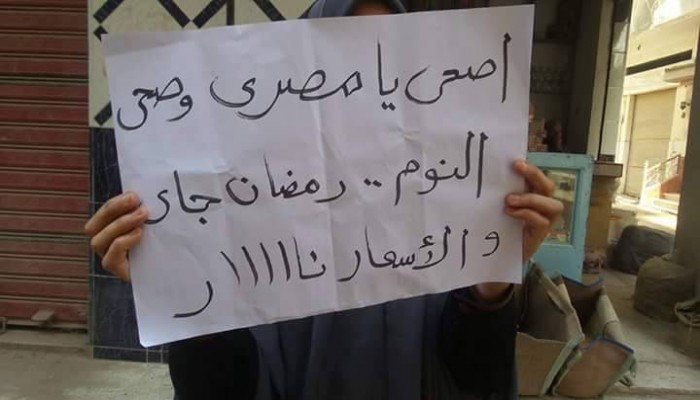 اصحى يا مصرى وصحى
النوم .. رمضان جاى
والأسعار نااااار